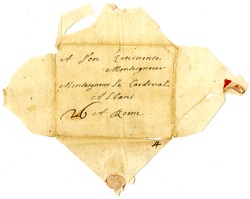 A Son Eminence
Monseigneur
Monseigneur Le Cardinal
Albani
26 A Rome.
4